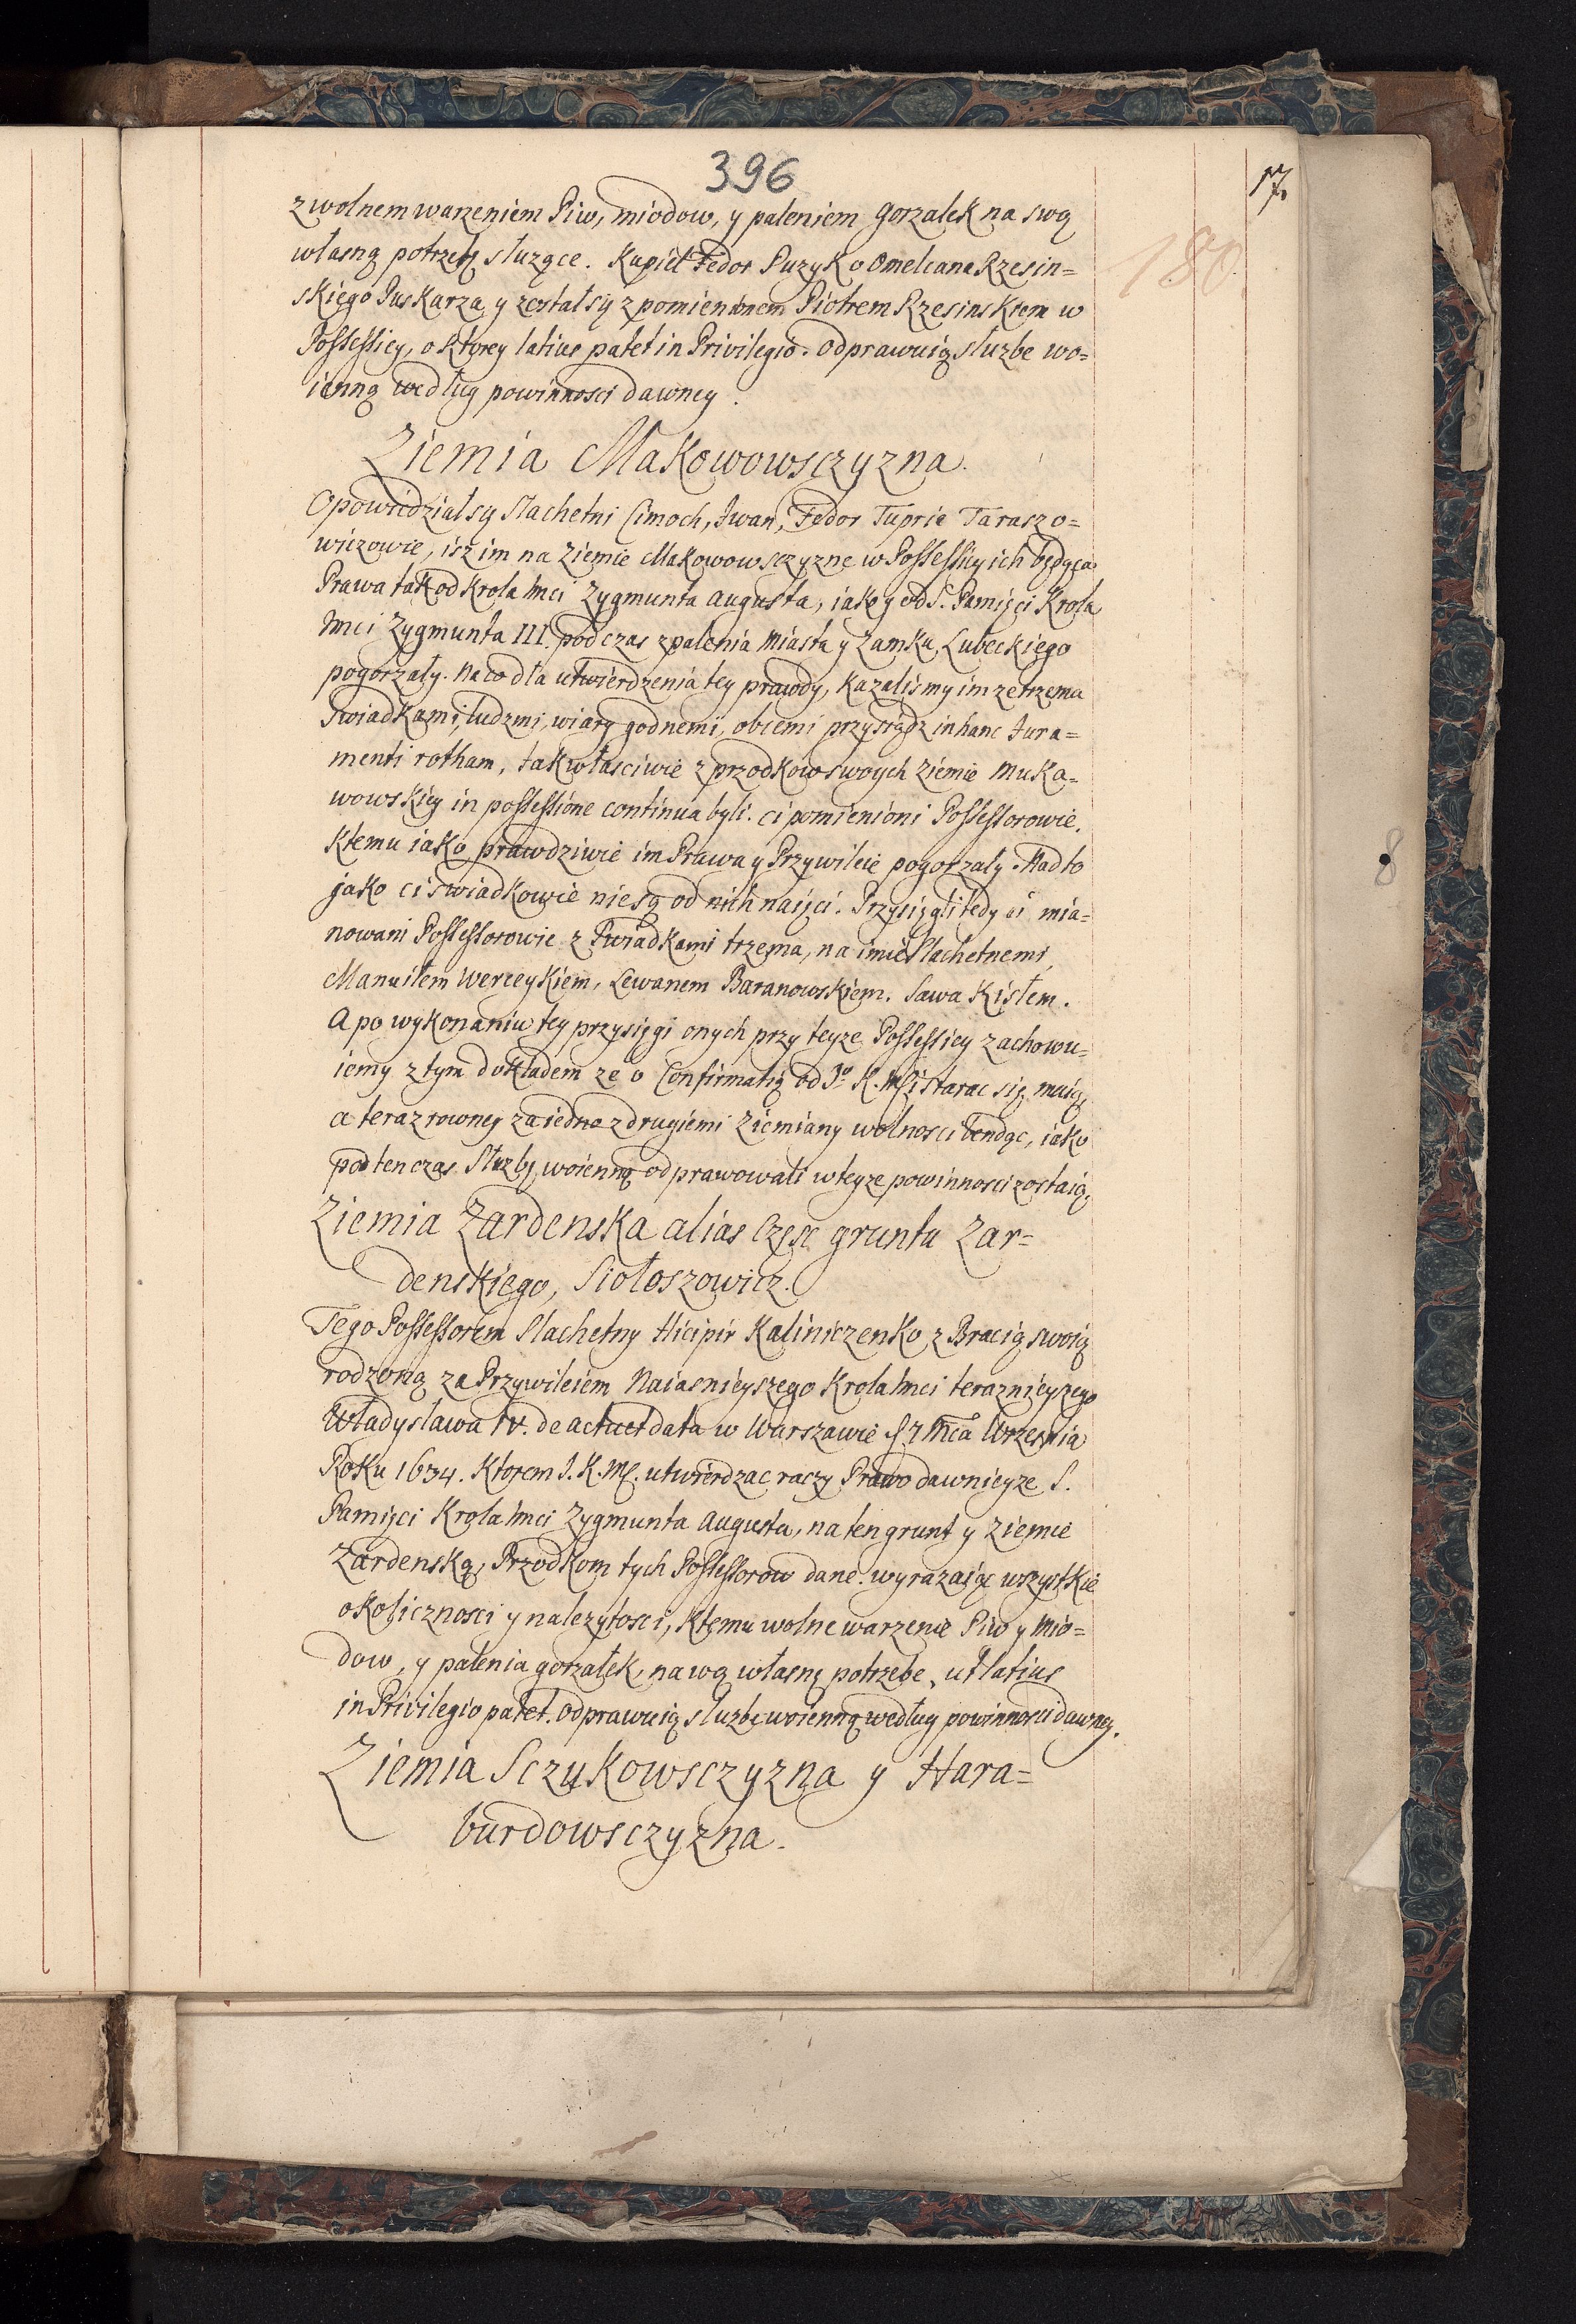 396
17.
180.
z wolnem warzeniem Piw, miodow, y paleniem gorzalek na swą
własną potrzebę służące. Kupieł Fedor Puzyk o Omelcana Rzesin=
skiego Puskarza, y zostałsię z pomienionem Piotrem Rzesinskiem w
Possessiey, o ktorey latius patet in Privilegio. odprawuią służbe wo=
ienną według powinnosci dawney.
Ziemia Makowowsczyzna.
Opowiedzialsię Slachetni Cimoch, Iwan, Fedor Tuprie Taraszo=
wiczowie, isz im na Ziemie Makowowsczyzne w Possessiey ich będącą
Prawa tak od Krola Imci Zygmunta Augusta, iako y od S. Pamięci Krola
Imci Zygmunta III. podczas zpalenia Miasta y Zamku Lubeckiego
pogorzały. Na co dla utwierdzenia tey prawdy, kazalismy im ze trzema
swiadkami, ludzmi, wiary godnemi, obcemi przysiądz in hanc Jura=
menti rotham, tak własciwie z przodkow swoych Ziemie Muka=
wowskiey in possessione continua byli. ci pomienioni Possessorowie.
Ktemu iako prawdziwie im Prawa y Przywileie pogorzały. Nadto
jako ci swiadkowie niesą od nich naięci. Przysięgli tedy ci mia=
nowani Possessorowie z Swiadkami trzema, na imie Slachetnemi,
Manuiłem Werceykiem, Lewanem Baranowskiem. Sawa Kisłem.
A po wykonaniu tey przysięgi onych przy teyze Possessiey zachowu=
iemy z tym dokładem ze o Confirmatią od Jo K. Msci starac się maią,
a teraz rowney zaiedno z drugiemi Ziemiany wolnosci bendąc, iako
podtenczas Służbę woienną odprawowali w teyze powinnosci zostaią.
Ziemia Zardenska alias Częsc gruntu Zar=
denskiego, Siołoszowicz.
Tego Possessorem Slachetny Hicipir Kaliniczenko z Bracią swoią
rodzoną za Przywileiem Naiasnieyszego Krola Imci teraznieyzego
Władysława IV. de actu et data w Warszawie 27 Mca Wrzesnia
Roku 1634. Ktorem J. K. Msc. utwierdzac raczy Prawo dawnieyze S.
Pamięci Krola Imci Zygmunta Augusta, na ten grunt y Ziemie
Zardenską, Przodkom tych Possessorow dane. wyrazaiąc wszystkie
okolicznosci y nalezytosci, Ktemu wolne warzenie Piw y Mio=
dow, y palenia gorzałek, na wą własną potrzebe, ut latius
in Privilegio patet. odprawuią służbę woienną według powinnosci dawney.
Ziemia Sczukowsczyzna y Hara=
burdowsczyzna.
8